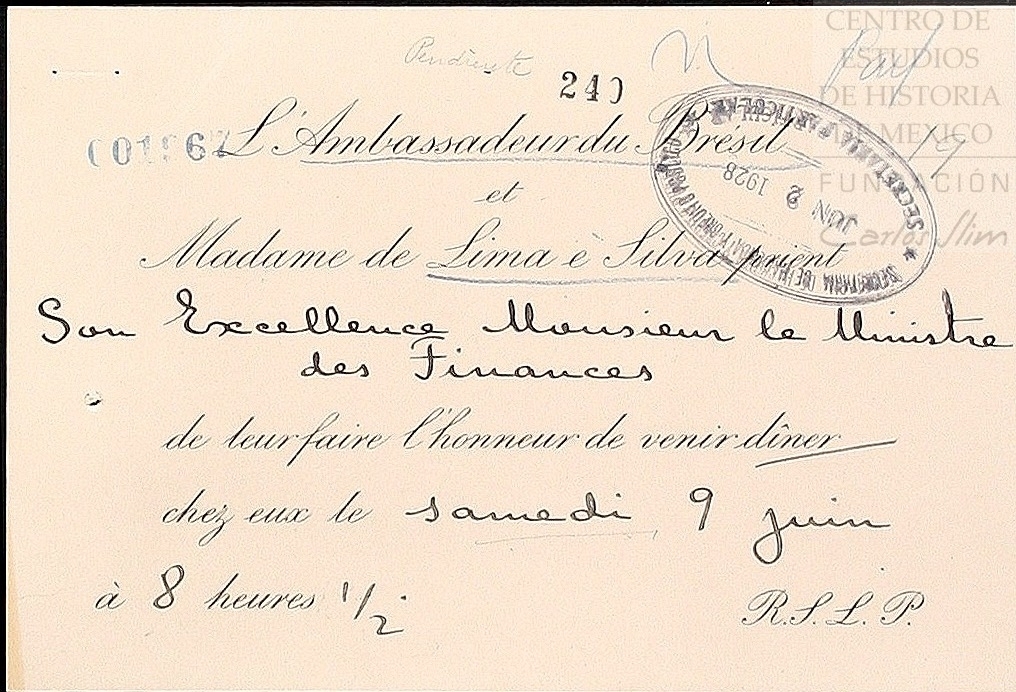 CENTRO DE
ESTUDIOS
DE HISTORIA
DE MEXICO
FUNDACIÓN
Carlos Slim
Pendiente
240
L'Ambassadeur du Brésil
et
Madame de Lima e Silva prient
Son Excellence Monsieur le Ministre
des Finances
de leur faire l'honneur de venir dîner
chez eux le samedi, 9 juin
à 8 heures 1/2
R.S.L.P.
SECRETARIA PARTICULAR
JUN 2 1928
SECRETARIA DE HACIENDA Y CREDITO PUBLICO